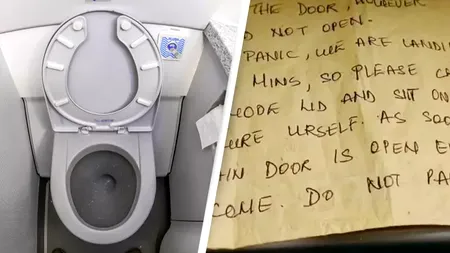 THE DOOR, HOWEVER
D NOT OPEN-
PANIC, WE ARE LANDI
MINS, SO PLEASE C
MODE LID AND SIT ON
URE URSELF. AS SOO
IN DOOR IS OPEN E
COME. DO NOT PA